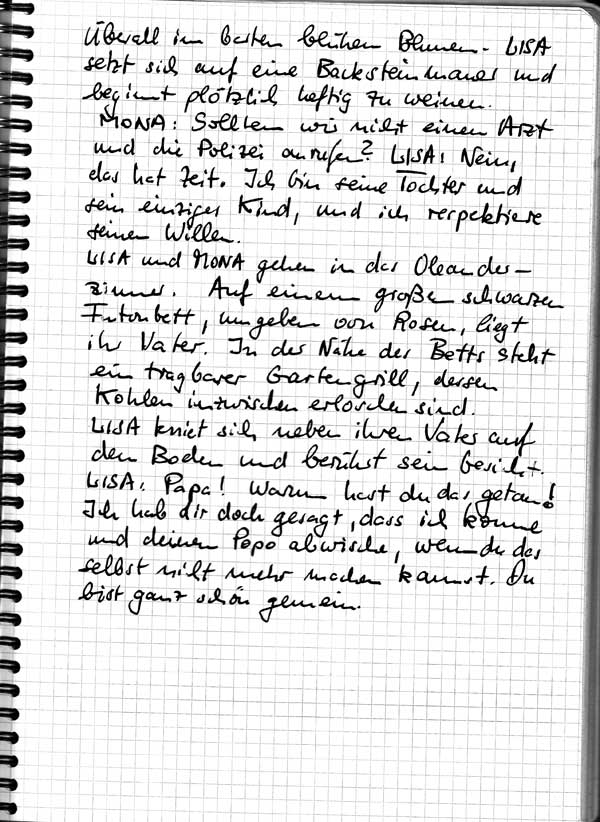 Überall im Garten blühen Blumen. LISA
setzt sich auf eine Backsteinmauer und
beginnt plötzlich heftig zu weinen.
MONA: Sollten wir nicht einen Arzt
und die Polizei anrufen? LISA: Nein,
das hat Zeit. Ich bin seine Tochter und
sein einziges Kind, und ich respektiere
seinen Willen.
LISA und MONA gehen in das Oleander-
zimmer. Auf einem großen schwarzen
Futonbett, umgeben von Rosen, liegt
ihr Vater. In der Nähe des Betts steht
ein tragbarer Gartengrill, dessen
Kohlen inzwischen erloschen sind.
LISA kniet sich neben ihren Vater auf
den Boden und berührt sein Gesicht.
LISA: Papa! Warum hast du das getan!
Ich hab dir doch gesagt, dass ich komme
und deinen Popo abwische, wenn du das
selbst nicht mehr machen kannst. Du
bist ganz schön gemein.